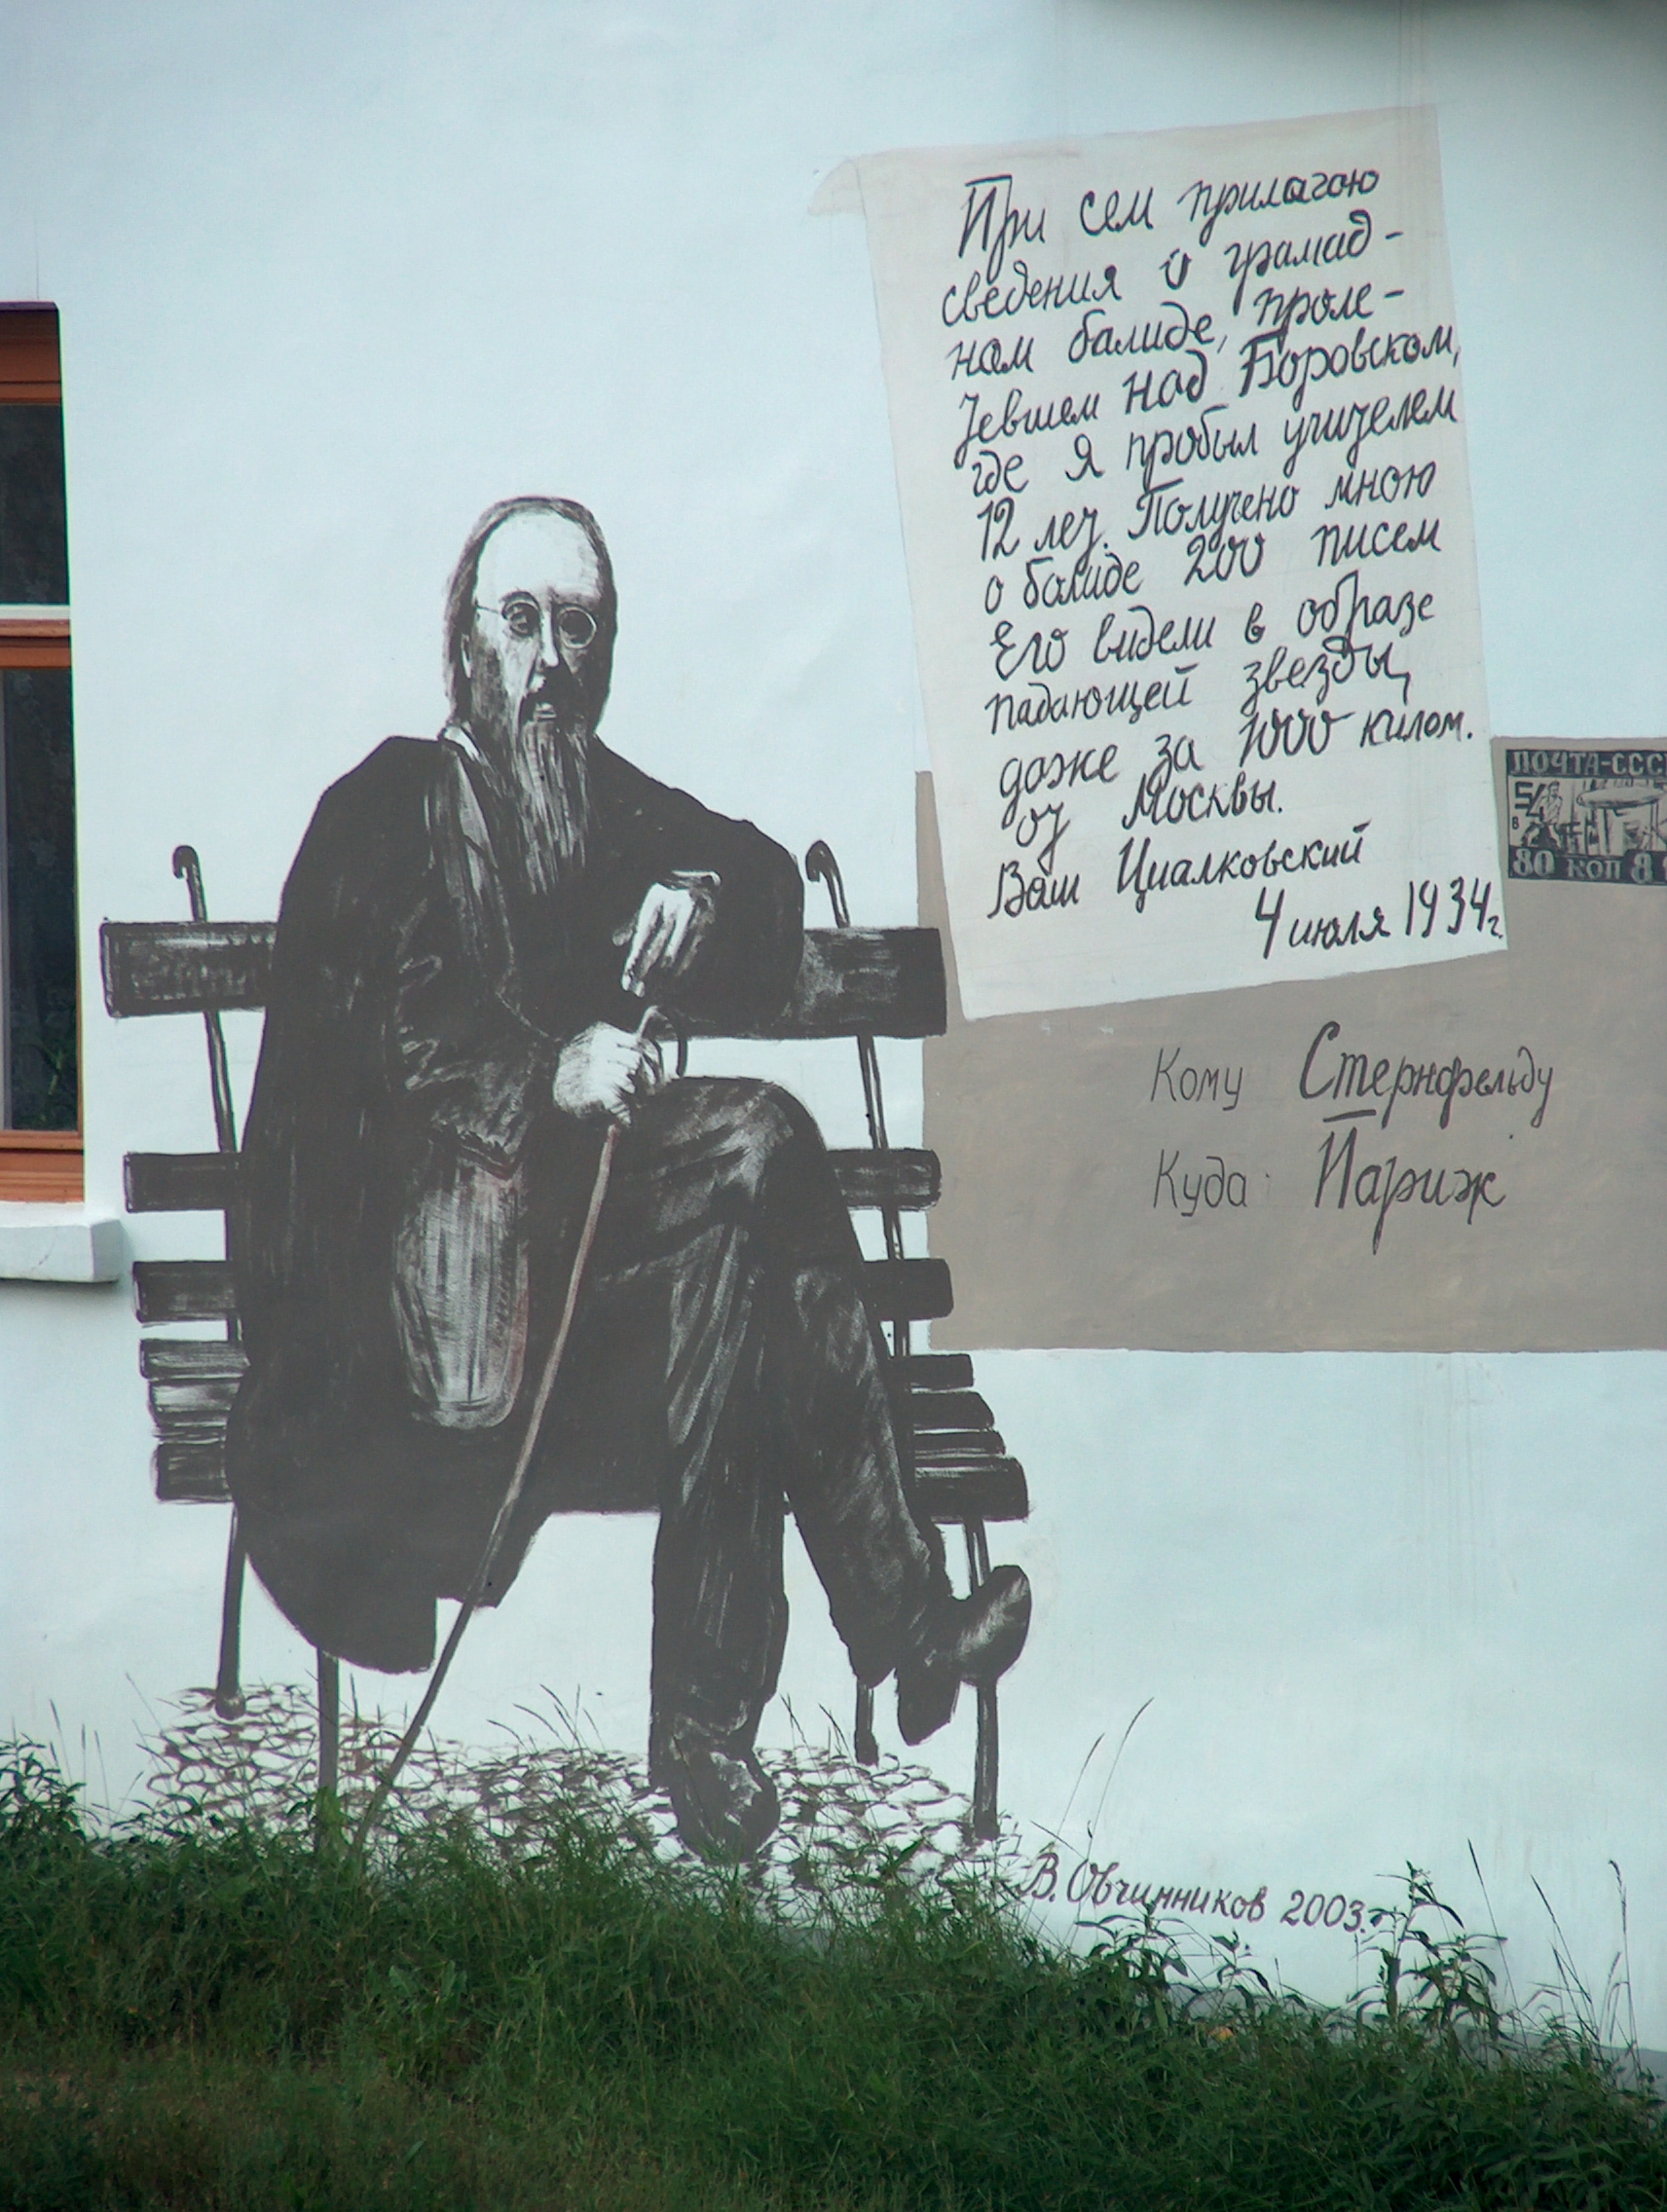 При сем прилагаю
сведения о громад-
ном болиде, проле-
тевшем над Боровском,
где я пробыл учителем
12 лет. Получено мною
о болиде 200 писем
Его видели в образе
падающей звезды,
даже за 1000 килом.
от Москвы.
Ваш Циалковский
4 июля 1934г.
ПОЧТА-СССР
80 КОП 8
Кому Стернфельду
Куда: Париж
В. Овчинников 2003г.